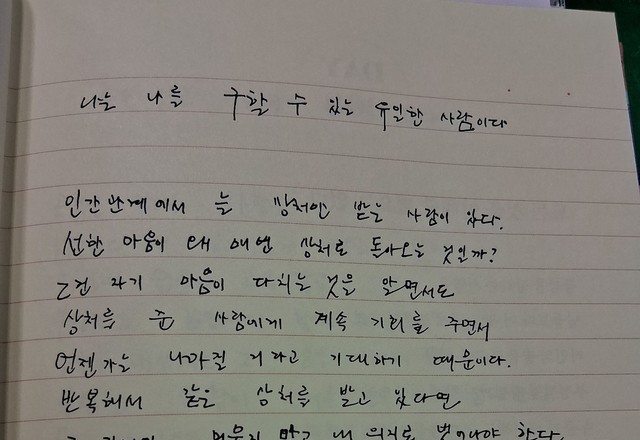 나는 나를 구할 수 있는 유일한 사람이다
인간관계에서 늘 상처만 받는 사람이 있다.
선한 마음이 왜 매번 상처로 돌아오는 것일까?
그건 자기 마음이 다치는 것을 알면서도
상처를 준 사람에게 계속 기회를 주면서
언젠가는 나아질 거라고 기대하기 때문이다.
반복해서 같은 상처를 받고 있다면
말고 내 의지로 벗어나야 한다.